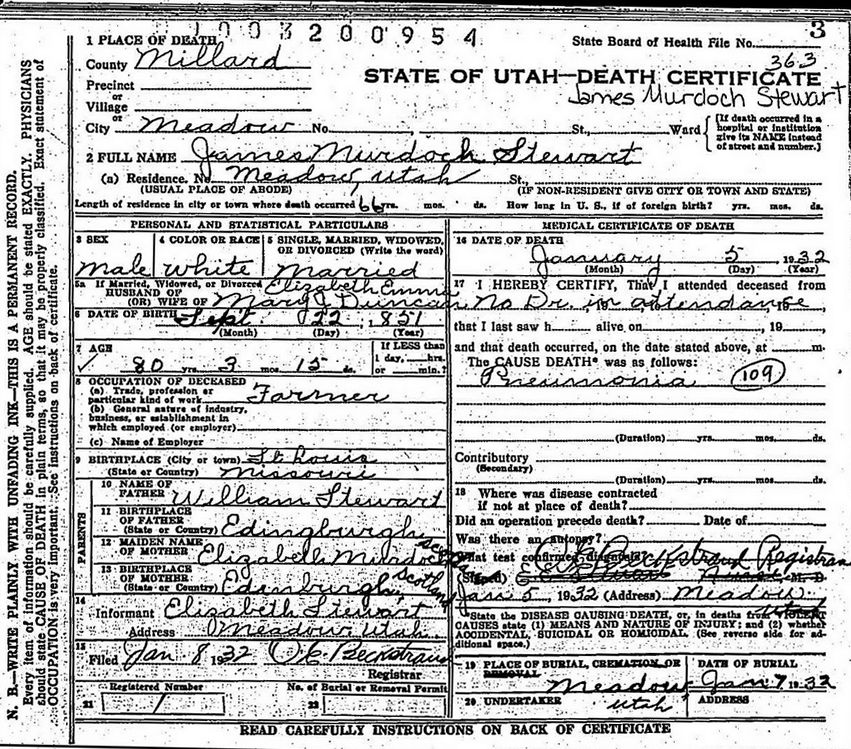 1003200954
3
1 PLACE OF DEATH
State Board of Health File No.
County Millard
363
Precinct
STATE OF UTAH—DEATH CERTIFICATE
or
Village
James Murdoch Stewart
or
City Meadow No. St., Ward
[If death occurred in a hospital or institution give its NAME instead of street and number.]
2 FULL NAME James Murdoch Stewart
(a) Residence. No Meadow, Utah St.,
(USUAL PLACE OF ABODE) (IF NON-RESIDENT GIVE CITY OR TOWN AND STATE)
Length of residence in city or town where death occurred 66 yrs. mos. ds. How long in U. S., if of foreign birth? yrs. mos. ds.
PERSONAL AND STATISTICAL PARTICULARS
3 SEX
male
4 COLOR OR RACE
white
5 SINGLE, MARRIED, WIDOWED, OR DIVORCED (Write the word)
Married
5a If Married, Widowed, or Divorced Elizabeth Emma
HUSBAND OF
(OR) WIFE OF Mary J Duncan
6 DATE OF BIRTH Sept 22, 1851
(Month) (Day) (Year)
7 AGE
80 yrs. 3 mos. 15 ds.
If LESS than
1 day, hrs.
or min.?
8 OCCUPATION OF DECEASED
(a) Trade, profession or
particular kind of work Farmer
(b) General nature of industry,
business, or establishment in
which employed (or employer)
(c) Name of Employer
9 BIRTHPLACE (City or town) St. Louis
(State or Country) Missouri
PARENTS
10 NAME OF
FATHER William Stewart
11 BIRTHPLACE
OF FATHER
(State or Country) Edingburgh Scotland
12 MAIDEN NAME
OF MOTHER Elizabeth Murdoch
13 BIRTHPLACE
OF MOTHER
(State or Country) Edinburgh, Scotland
14
Informant Elizabeth Stewart
Address Meadow Utah
15
Filed Jan 8 1932 O.C. Beckstrand
Registrar
Registered Number
No. of Burial or Removal Permit
21 1
22
MEDICAL CERTIFICATE OF DEATH
16 DATE OF DEATH
January 5, 1932
(Month) (Day) (Year)
17 I HEREBY CERTIFY, That I attended deceased from
No Dr. in attendance
that I last saw h alive on , 19 ,
and that death occurred, on the date stated above, at m.
The CAUSE DEATH* was as follows:
Pneumonia 109
(Duration) yrs. mos. ds.
Contributory
(Secondary)
(Duration) yrs. mos. ds.
18 Where was disease contracted
if not at place of death?
Did an operation precede death? Date of
Was there an autopsy?
What test confirmed diagnosis?
Beckstrand Registrar
(Signed) M. D.
Jan 5, 1932 (Address) Meadow
Utah
*State the DISEASE CAUSING DEATH, or, in deaths from VIOLENT
CAUSES state (1) MEANS AND NATURE OF INJURY; and (2) whether
ACCIDENTAL, SUICIDAL OR HOMICIDAL. (See reverse side for ad-
ditional space.)
19 PLACE OF BURIAL, CREMATION, OR REMOVAL
Meadow
DATE OF BURIAL
Jan 7 1932
20 UNDERTAKER Utah
ADDRESS
READ CAREFULLY INSTRUCTIONS ON BACK OF CERTIFICATE
N. B.—WRITE PLAINLY WITH UNFADING INK—THIS IS A PERMANENT RECORD.
Every item of information should be carefully supplied. AGE should be stated EXACTLY. PHYSICIANS
should state CAUSE OF DEATH in plain terms, so that it may be properly classified. Exact statement of
OCCUPATION is very important. See instructions on back of certificate.